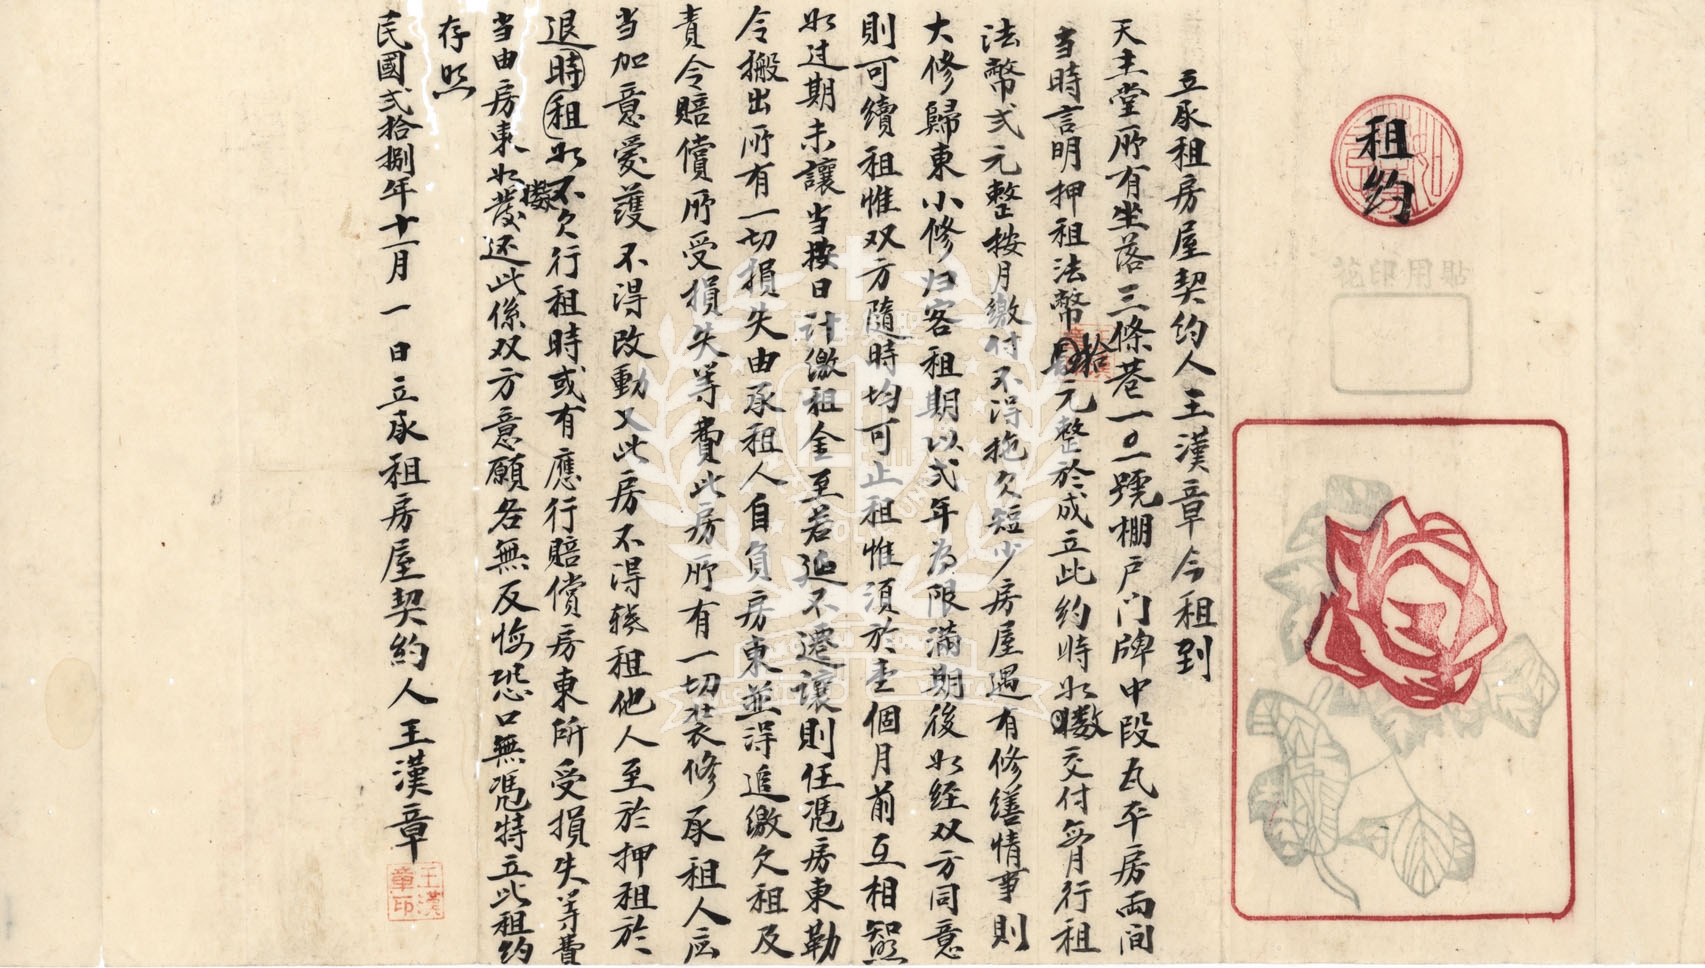 租約
貼用印花
立承租房屋契約人王漢章今租到
天主堂所有坐落三條巷一〇一號棚戶门牌中段瓦平房両间
当時言明押租法幣拾元整於成立此約時如數交付每月行租
法幣弍元整按月繳付不得拖欠短少房屋遇有修繕情事則
大修歸東小修归客租期以弍年为限滿期後如経双方同意
則可續租惟双方隨時均可止租惟須於壹個月前互相知照
如过期未讓当按日計繳租金至若延不遷讓則任憑房東勒
令搬出所有一切損失由承租人自負房東並得追繳欠租及
責令賠償所受損失等費此房所有一切装修承租人应
当加意愛護不得改動又此房不得轉租他人至於押租於
退租時如不欠行租時或有應行賠償房東所受損失等費
当由房東如數發还此係双方意願各無反悔恐口無憑特立此租約
存照
民國弍拾捌年十一月一日立承租房屋契約人王漢章
王漢章印